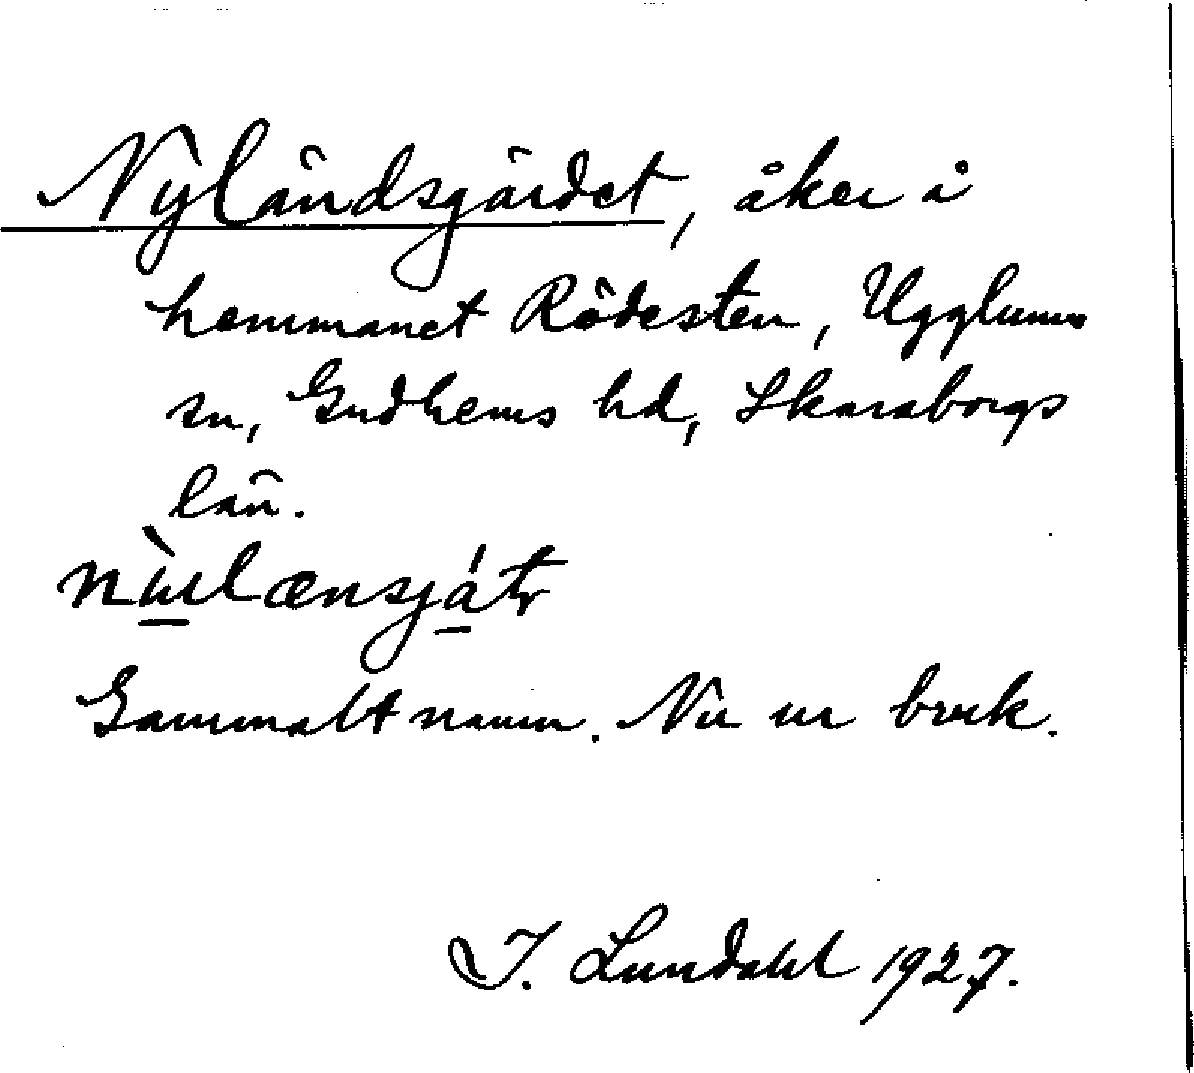 Nyländsgärdet, åker å
hemmanet Rödesten, Ugglums
sn, Gudhems hd, Skaraborgs
län.
Gammalt namn. Nu ur bruk.
I. Lundahl 1927.